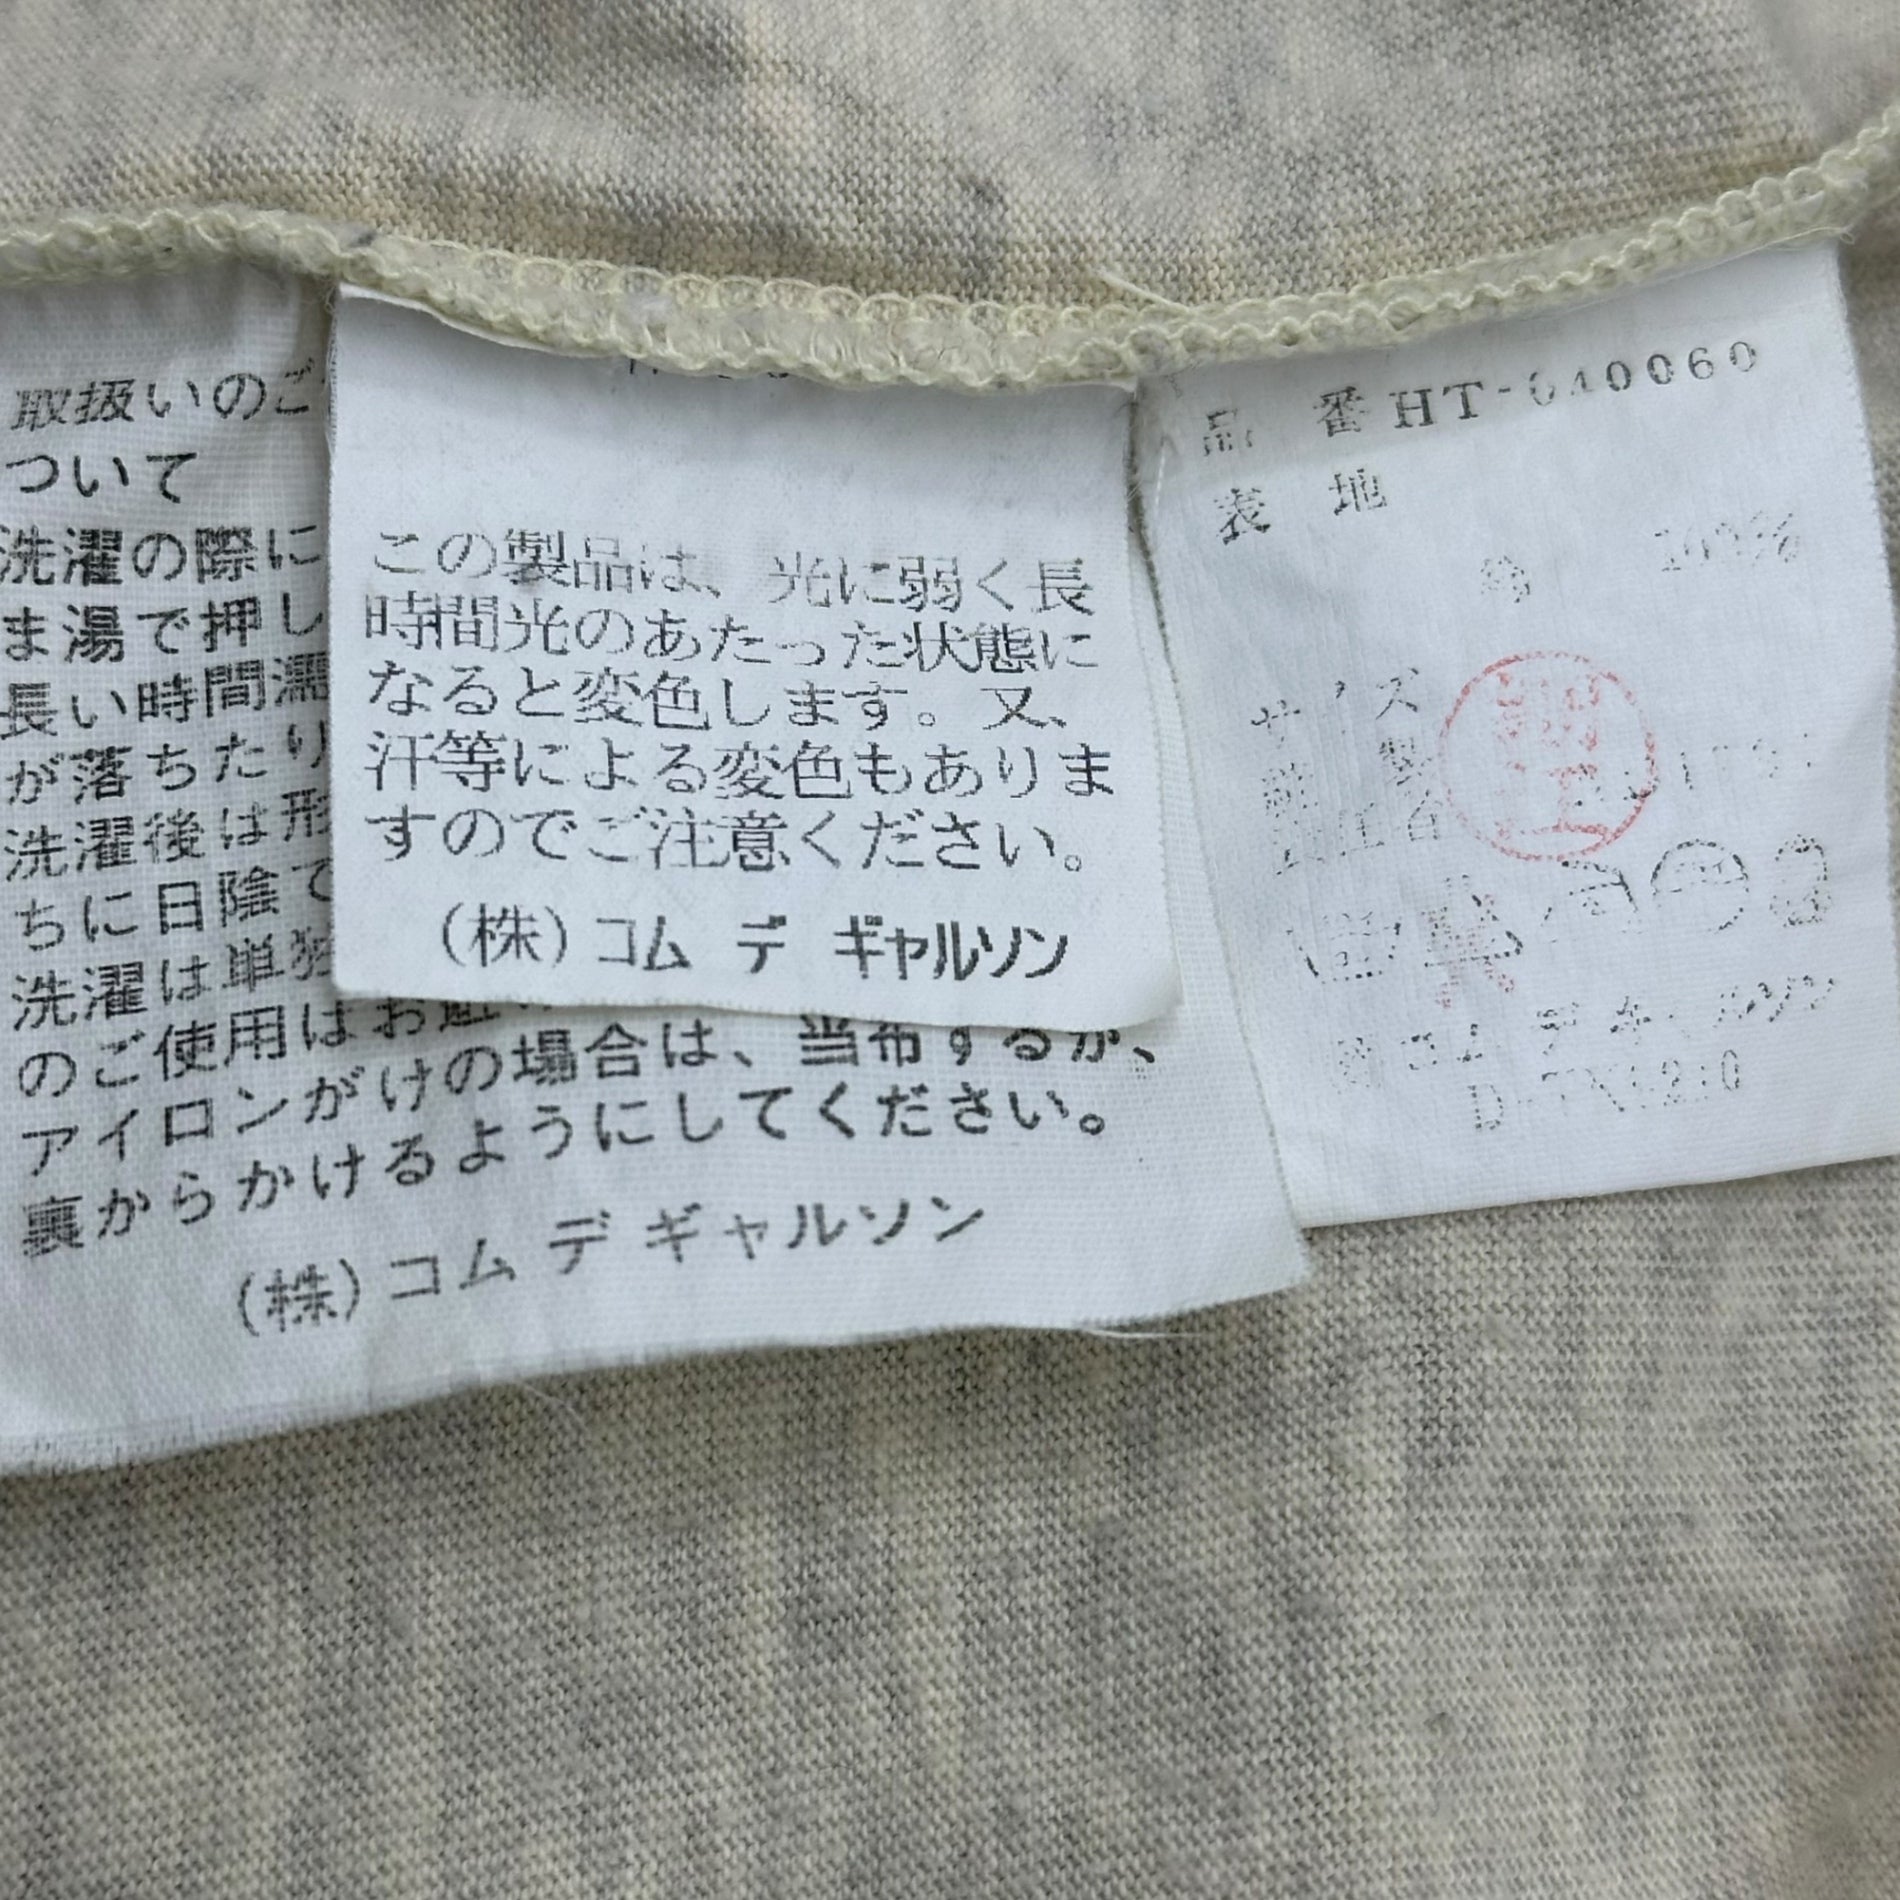 取扱いのご
ついて
洗濯の際に
ま湯で押し
長い時間濡
が落ちたり
洗濯後は形
ちに日陰で
洗濯は単独
のご使用はお避
アイロンがけの場合は、当布するか、
裏からかけるようにしてください。
(株)コム デ ギャルソン
この製品は、光に弱く長
時間光のあたった状態に
なると変色します。又、
汗等による変色もありま
すのでご注意ください。
(株)コム デ ギャルソン
品 番 HT-040060
表 地
100%
サイズ
コム デ ギャルソン